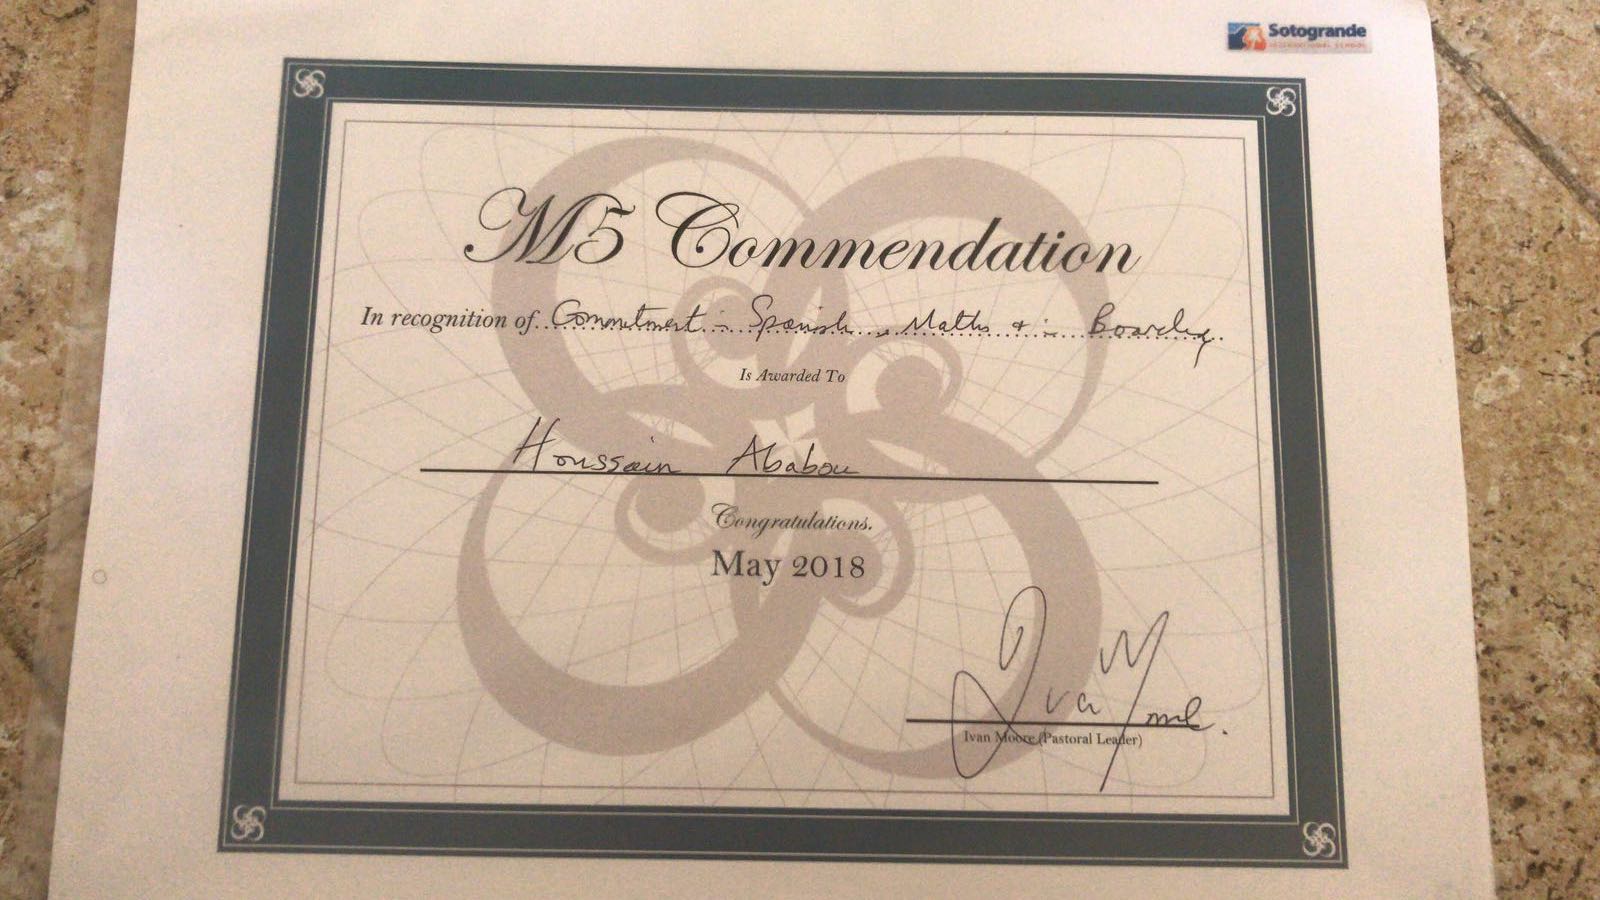 Sotogrande
INTERNATIONAL SCHOOL
M5 Commendation
In recognition of Commitment in Spanish, Maths & in Boarding
Is Awarded To
Houssain Ababou
Congratulations.
May 2018
Ivan Moore
Ivan Moore (Pastoral Leader)